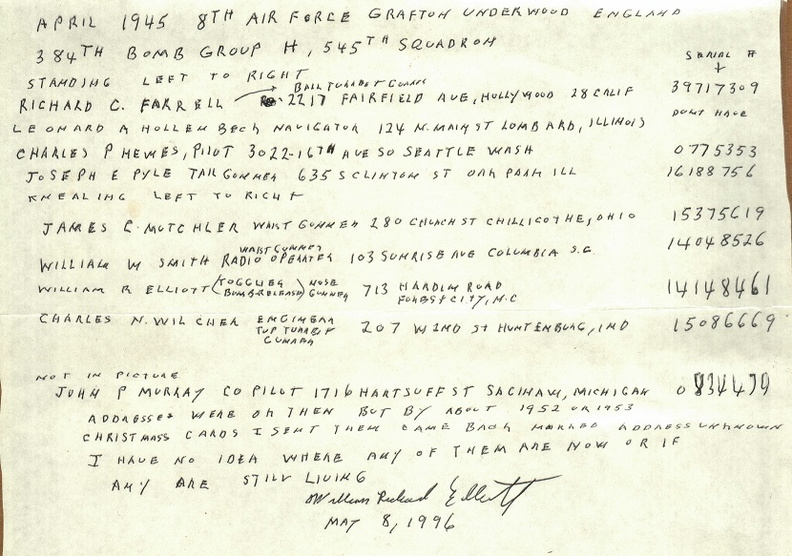 APRIL 1945 8TH AIR FORCE GRAFTON UNDERWOOD ENGLAND
384TH BOMB GROUP H, 545TH SQUADRON
SERIAL #
STANDING LEFT TO RIGHT
BALL TURRET GUNNER
RICHARD C. FARRELL 2217 FAIRFIELD AVE, HOLLYWOOD 28 CALIF 39717309
LEONARD A HOLLEMBECK NAVIGATOR 124 N. MAIN ST LOMBARD, ILLINOIS DONT HAVE
CHARLES P HEWES, PILOT 3022-16TH AVE SO SEATTLE WASH 0775353
JOSEPH E PYLE TAIL GUNNER 635 S CLINTON ST OAK PARK ILL 16188756
KNEALING LEFT TO RIGHT
JAMES C. MUTCHLER WAIST GUNNER 280 CHURCH ST CHILLICOTHE, OHIO 15375619
WAIST GUNNER
WILLIAM W SMITH RADIO OPERATER 103 SUNRISE AVE COLUMBIA S.C. 14048526
WILLIAM R ELLIOTT (TOGGLIER BOMB RELEASE) NOSE GUNNER 713 HARDIN ROAD FOREST CITY, N.C 14148461
CHARLES N. WILCHER ENGINEER TOP TURRET GUNNER 207 W 2ND ST HUNTENBURG, IND 15086669
NOT IN PICTURE
JOHN P MURRAY CO PILOT 1716 HARTSUFF ST SAGINAW, MICHIGAN 0834479
ADDRESSES WERE OK THEN BUT BY ABOUT 1952 OR 1953
CHRISTMASS CARDS I SENT THEM CAME BACK MARKED ADDRESS UNKNOWN
I HAVE NO IDEA WHERE ANY OF THEM ARE NOW OR IF
ANY ARE STILL LIVING
William Richard Elliott
MAY 8, 1996